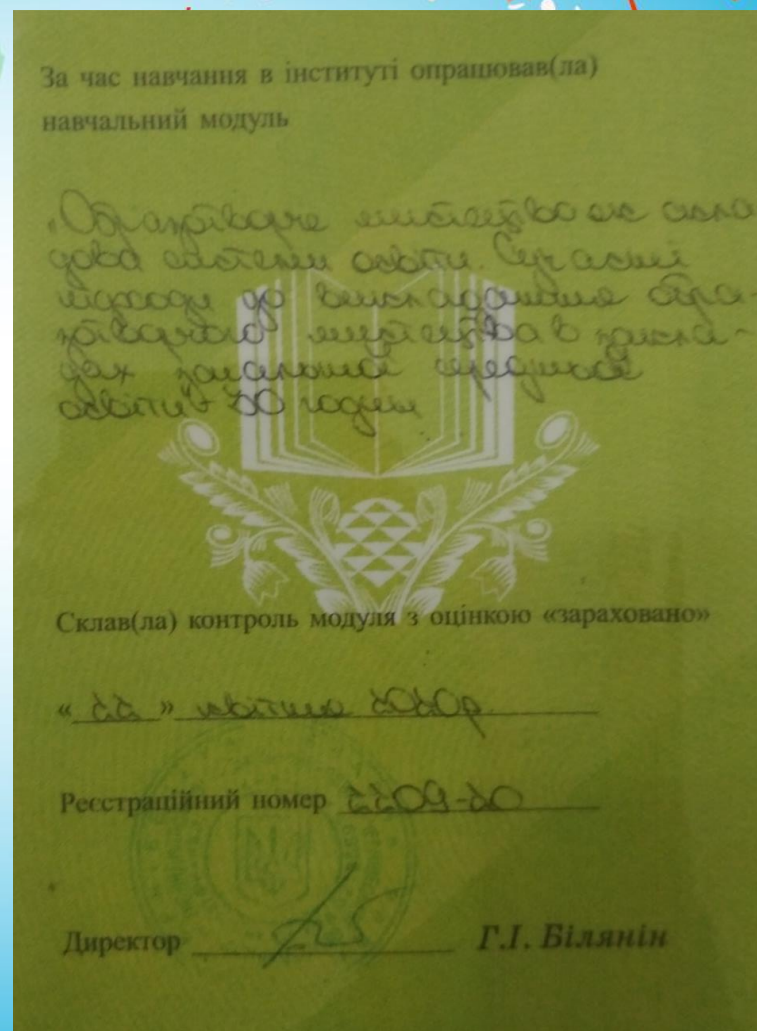 За час навчання в інституті опрацював(ла)
навчальний модуль
„Образотворче мистецтво як скла-
дова системи освіти. Сучасні
підходи до викладання обра-
зотворчого мистецтва в закла-
дах загальної середньої
освіти" 30 годин
Склав(ла) контроль модуля з оцінкою «зараховано»
« 22 » квітня 2020р.
Реєстраційний номер 2209-20
Директор Г.І. Білянін